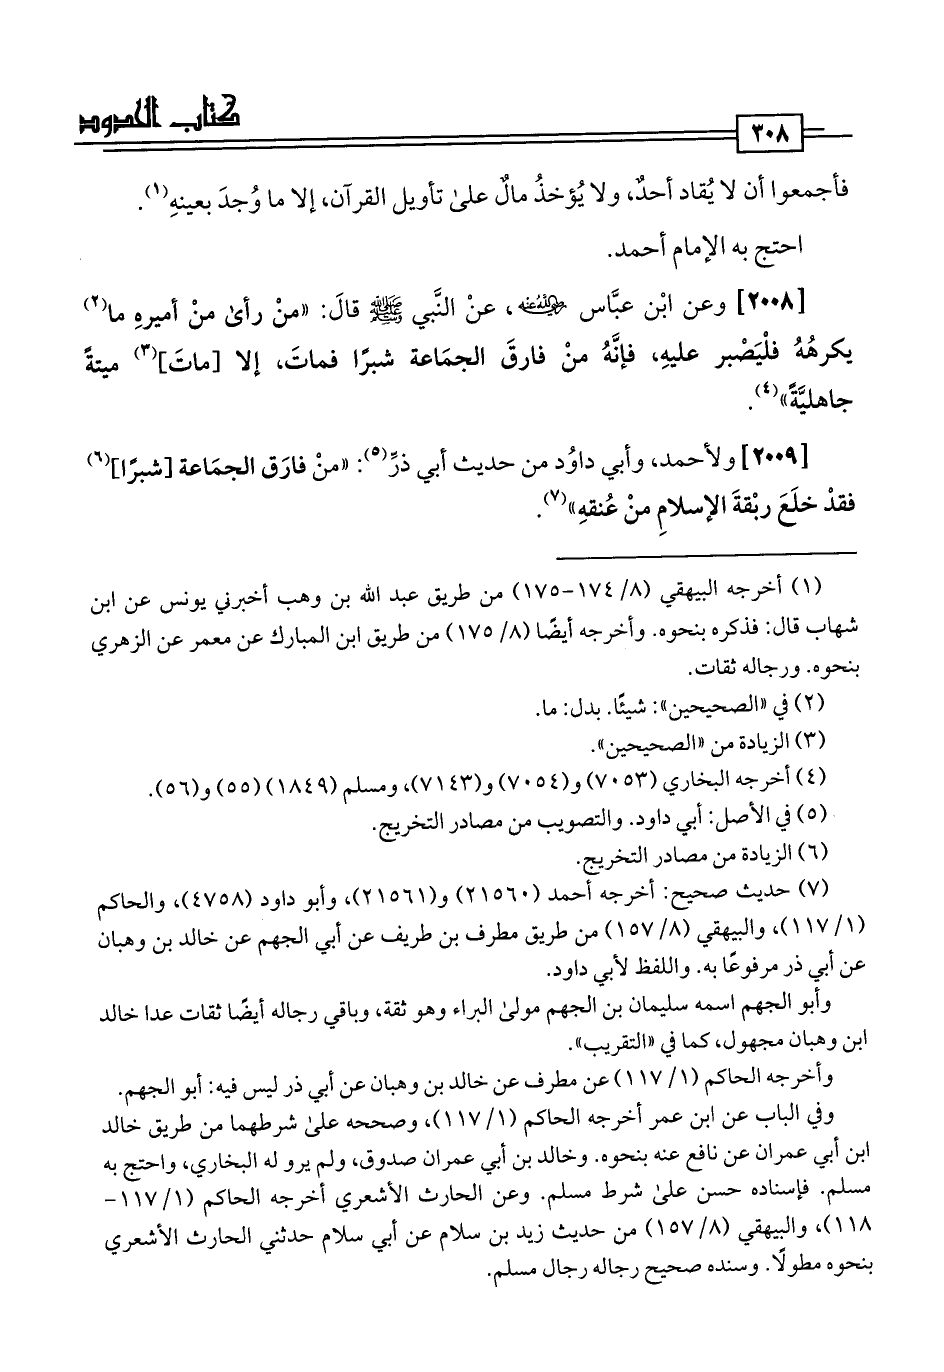 كتاب الحدود
٣٠٨
فأجمعوا أن لا يُقاد أحدٌ، ولا يُؤخذُ مالٌ علىٰ تأويل القرآن، إلا ما وُجدَ بعينهِ(١).
احتج به الإمام أحمد.
[٢٠٠٨] وعن ابْن عبَّاس رضي الله عنه، عنْ النَّبي ﷺ قالَ: «منْ رأىٰ منْ أميرهِ ما(٢)
يكرهُهُ فلْيَصْبر عليهِ، فإنَّهُ منْ فارقَ الجمَاعة شبرًا فماتَ، إلا [ماتَ](٣) ميتةً
جاهليَّةً»(٤).
[٢٠٠٩] ولأحمد، وأبي داوُد من حديث أبي ذرٍّ(٥): «منْ فارَق الجمَاعة [شبرًا](٦)
فقدْ خلَعَ ربْقةَ الإسلامِ منْ عُنقهِ»(٧).
(١) أخرجه البيهقي (٨/ ١٧٤-١٧٥) من طريق عبد الله بن وهب أخبرني يونس عن ابن
شهاب قال: فذكره بنحوه. وأخرجه أيضًا (٨/ ١٧٥) من طريق ابن المبارك عن معمر عن الزهري
بنحوه. ورجاله ثقات.
(٢) في «الصحيحين»: شيئًا. بدل: ما.
(٣) الزيادة من «الصحيحين».
(٤) أخرجه البخاري (٧٠٥٣) و(٧٠٥٤) و(٧١٤٣)، ومسلم (١٨٤٩) (٥٥) و(٥٦).
(٥) في الأصل: أبي داود. والتصويب من مصادر التخريج.
(٦) الزيادة من مصادر التخريج.
(٧) حديث صحيح: أخرجه أحمد (٢١٥٦٠) و(٢١٥٦١)، وأبو داود (٤٧٥٨)، والحاكم
(١/ ١١٧)، والبيهقي (٨/ ١٥٧) من طريق مطرف بن طريف عن أبي الجهم عن خالد بن وهبان
عن أبي ذر مرفوعًا به. واللفظ لأبي داود.
وأبو الجهم اسمه سليمان بن الجهم مولىٰ البراء وهو ثقة، وباقي رجاله أيضًا ثقات عدا خالد
ابن وهبان مجهول، كما في «التقريب».
وأخرجه الحاكم (١/ ١١٧) عن مطرف عن خالد بن وهبان عن أبي ذر ليس فيه: أبو الجهم.
وفي الباب عن ابن عمر أخرجه الحاكم (١/ ١١٧)، وصححه علىٰ شرطهما من طريق خالد
ابن أبي عمران عن نافع عنه بنحوه. وخالد بن أبي عمران صدوق، ولم يرو له البخاري، واحتج به
مسلم. فإسناده حسن علىٰ شرط مسلم. وعن الحارث الأشعري أخرجه الحاكم (١/ ١١٧-
١١٨)، والبيهقي (٨/ ١٥٧) من حديث زيد بن سلام عن أبي سلام حدثني الحارث الأشعري
بنحوه مطولًا. وسنده صحيح رجاله رجال مسلم.